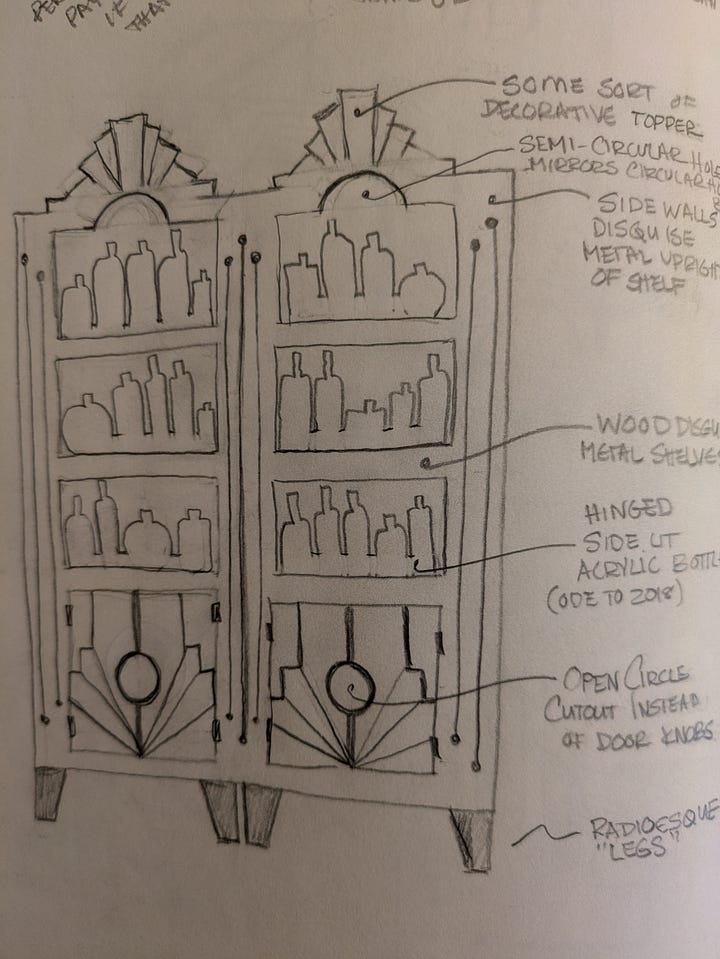 PA
IF
THAT
SOME SORT OF
DECORATIVE TOPPER
SEMI-CIRCULAR HOLE
MIRRORS CIRCULAR
SIDE WALLS
DISGUISE
METAL UPRIGHT
OF SHELF
WOOD DISGU
METAL SHELVES
HINGED
SIDE LIT
ACRYLIC BOTTL
(ODE TO 2018)
OPEN CIRCLE
CUTOUT INSTEAD
OF DOOR KNOBS
RADIOESQUE
"LEGS"